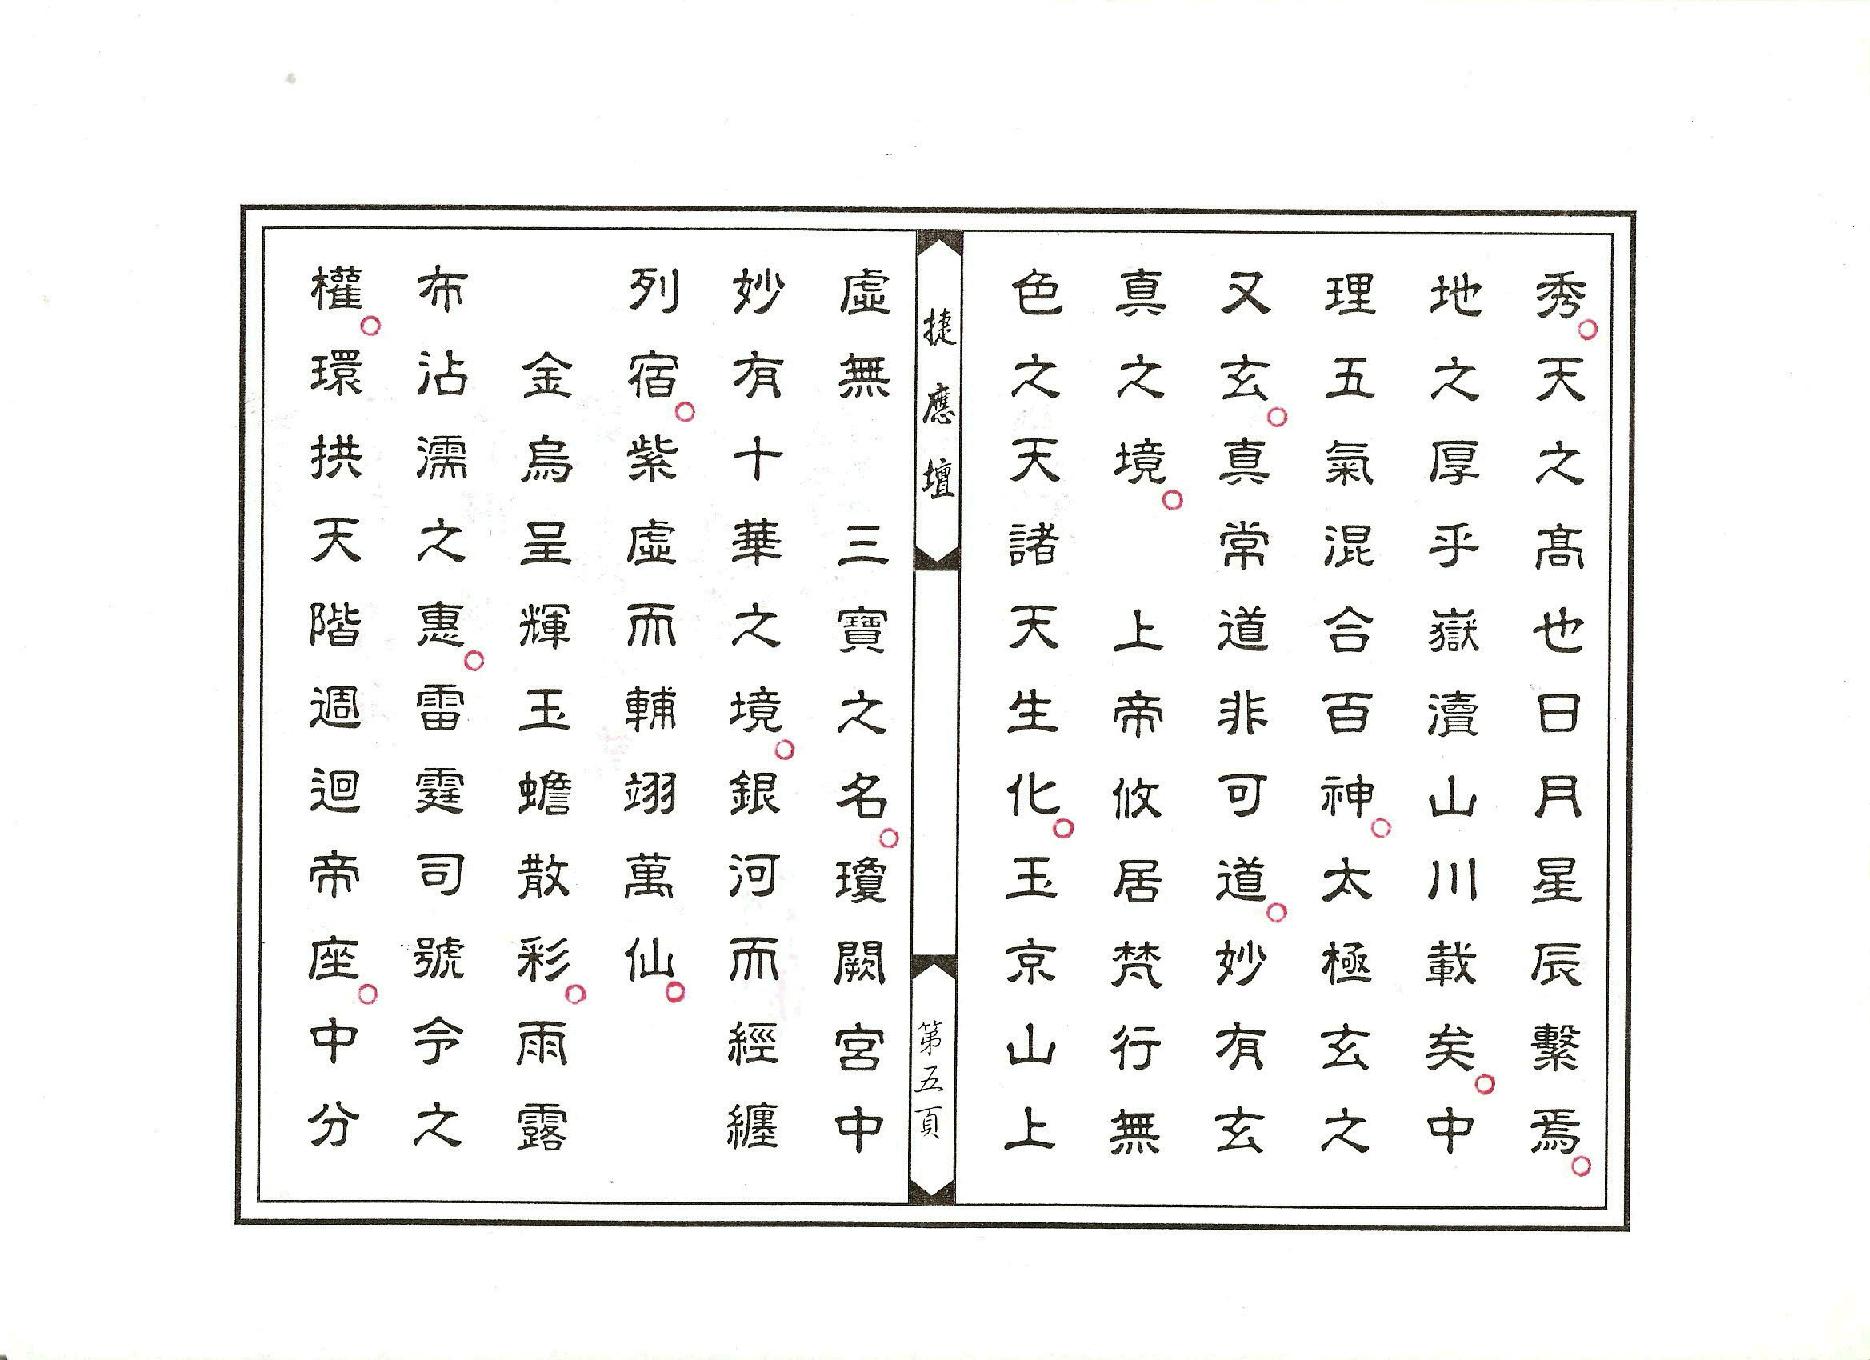 秀。天之高也日月星辰繫焉。
地之厚乎嶽瀆山川載矣。中
理五氣混合百神。太極玄之
又玄。真常道非可道。妙有玄
真之境。　上帝攸居梵行無
色之天諸天生化。玉京山上
捷應壇
第五頁
虛無　三寶之名。瓊闕宮中
妙有十華之境。銀河而經纏
列宿。紫虛而輔翊萬仙。
金烏呈輝玉蟾散彩。雨露
布沾濡之惠。雷霆司號令之
權。環拱天階週迴帝座。中分